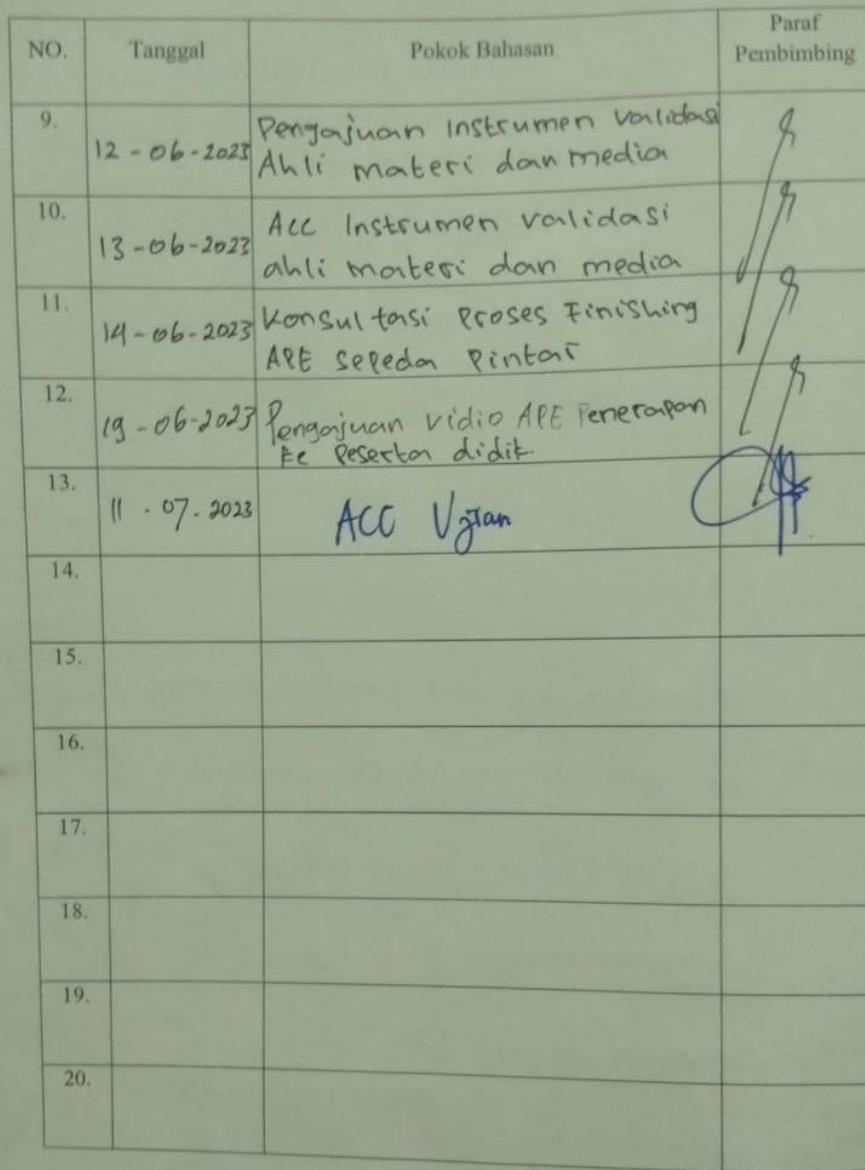 NO. Tanggal Pokok Bahasan Paraf
Pembimbing
9. 12-06-2023 Pengajuan Instrumen validasi
Ahli materi dan media
10. 13-06-2023 Acc Instrumen validasi
ahli materi dan media
11. 14-06-2023 Konsultasi Proses Finishing
APE Sepeda Pintar
12. 19-06-2023 Pengajuan vidio APE Penerapan
ke Peserta didik
13. 11.07.2023 ACC Ujian
14.
15.
16.
17.
18.
19.
20.